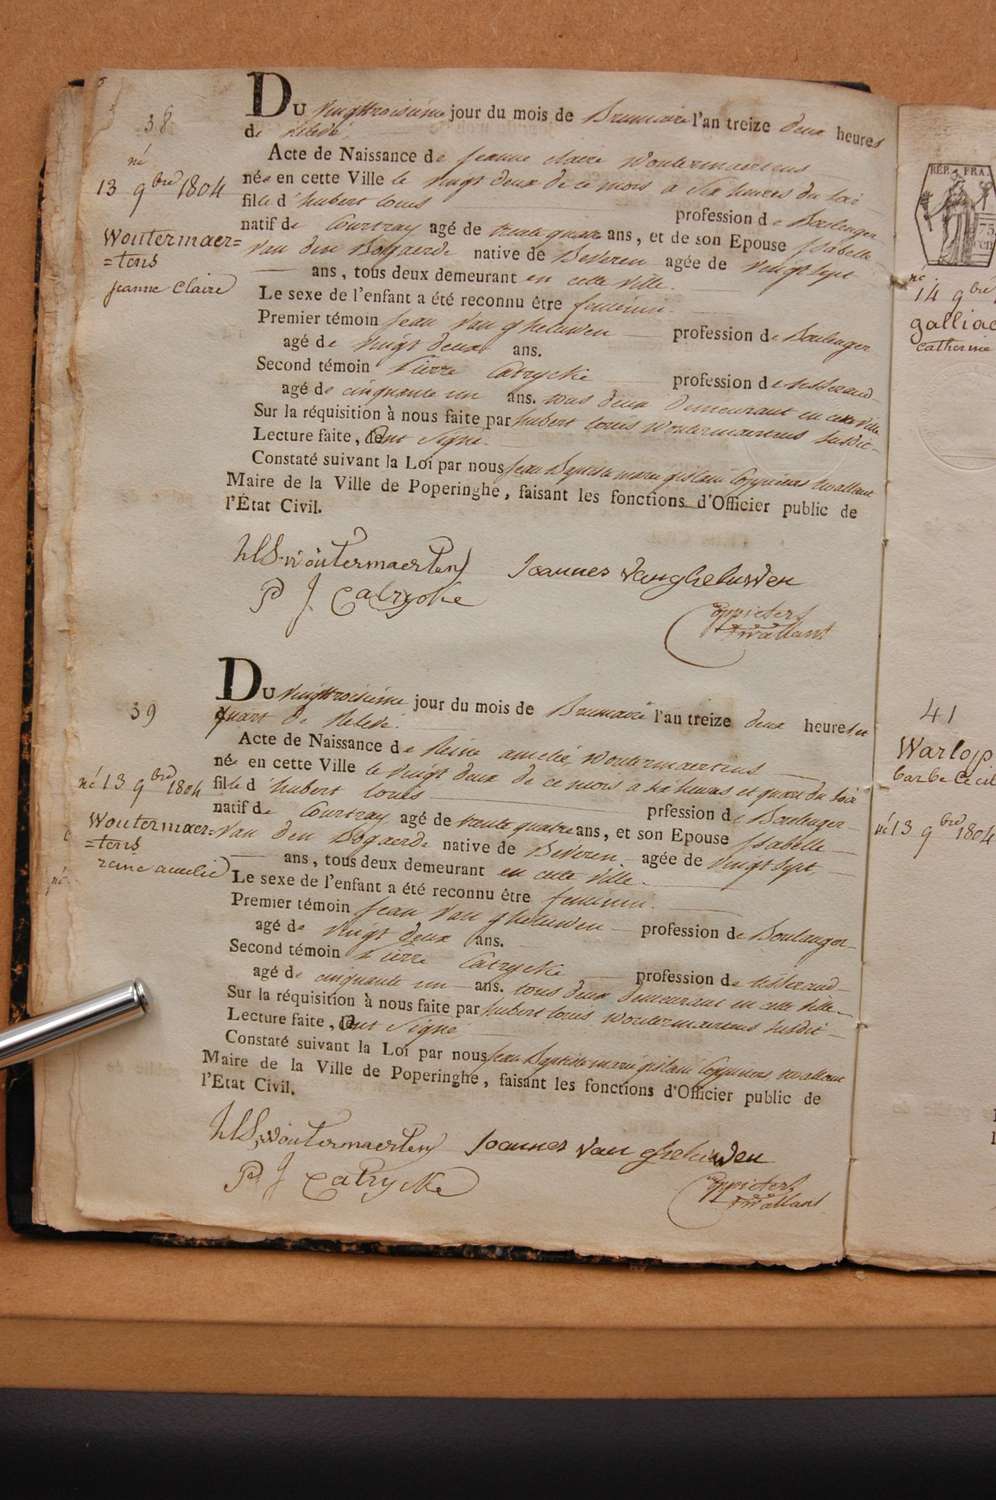 38
né
13 9bre 1804
Woutermaer=
=tens
jeanne Claire
Du vingttroisieme jour du mois de Brumaire l'an treize deux heures
de relevé
Acte de Naissance de jeanne claire woutermaertens
née en cette Ville le vingt deux de ce mois a six heures du soir
fille d'hubert louis profession de Boulenger
natif de Courtray agé de trente quatre ans, et de son Epouse Isabelle
Van den Bogaerde native de Beveren agée de vingt sept
ans, tous deux demeurant en cette ville.
Le sexe de l'enfant a été reconnu être feminin.
Premier témoin jean Van gheluwen profession de Boulenger
agé de vingt deux ans.
Second témoin Pierre Catrycke profession de tisserand
agé de cinquante un ans. tous deux demeurant en cette ville
Sur la réquisition à nous faite par hubert louis woutermaertens susdit
Lecture faite, ont signé.
Constaté suivant la Loi par nous jean Baptiste marie gislain Coppieters wallant
Maire de la Ville de Poperinghe, faisant les fonctions d'Officier public de
l'État Civil.
hLS woutermaertens Joannes vangheluwen
P J Catrycke
Coppieters
twallant
39
né 13 9bre 1804
Woutermaer=
=tens
reine amelie
Du vingttroisieme jour du mois de Brumaire l'an treize deux heures et
quart de relevé
Acte de Naissance de Reine amelie woutermaertens
née en cette Ville le vingt deux de ce mois a six heures et quart du soir
fille d'hubert louis prfession de Boulenger
natif de Courtray agé de trente quatre ans, et son Epouse Isabelle
Van den Bogaerde native de Beveren agée de vingt sept
ans, tous deux demeurant en cette ville.
Le sexe de l'enfant a été reconnu être feminin.
Premier témoin jean Van gheluwen profession de Boulanger
agé de vingt deux ans.
Second témoin Pierre Catrycke profession de tisserand
agé de cinquante un ans. tous deux demeurant en cette ville
Sur la réquisition à nous faite par hubert louis woutermaertens susdit
Lecture faite, ont signé
Constaté suivant la Loi par nous jean Baptiste marie gislain Coppieters wallant
Maire de la Ville de Poperinghe, faisant les fonctions d'Officier public de
l'Etat Civil.
hLS woutermaertens Joannes van gheluwen
P J Catrycke
Coppieters
twallant
RÉP. FRA.
75
né
14 9bre
galliae
catherine
41
Warlop
barbe cecil
né 13 9bre 1804